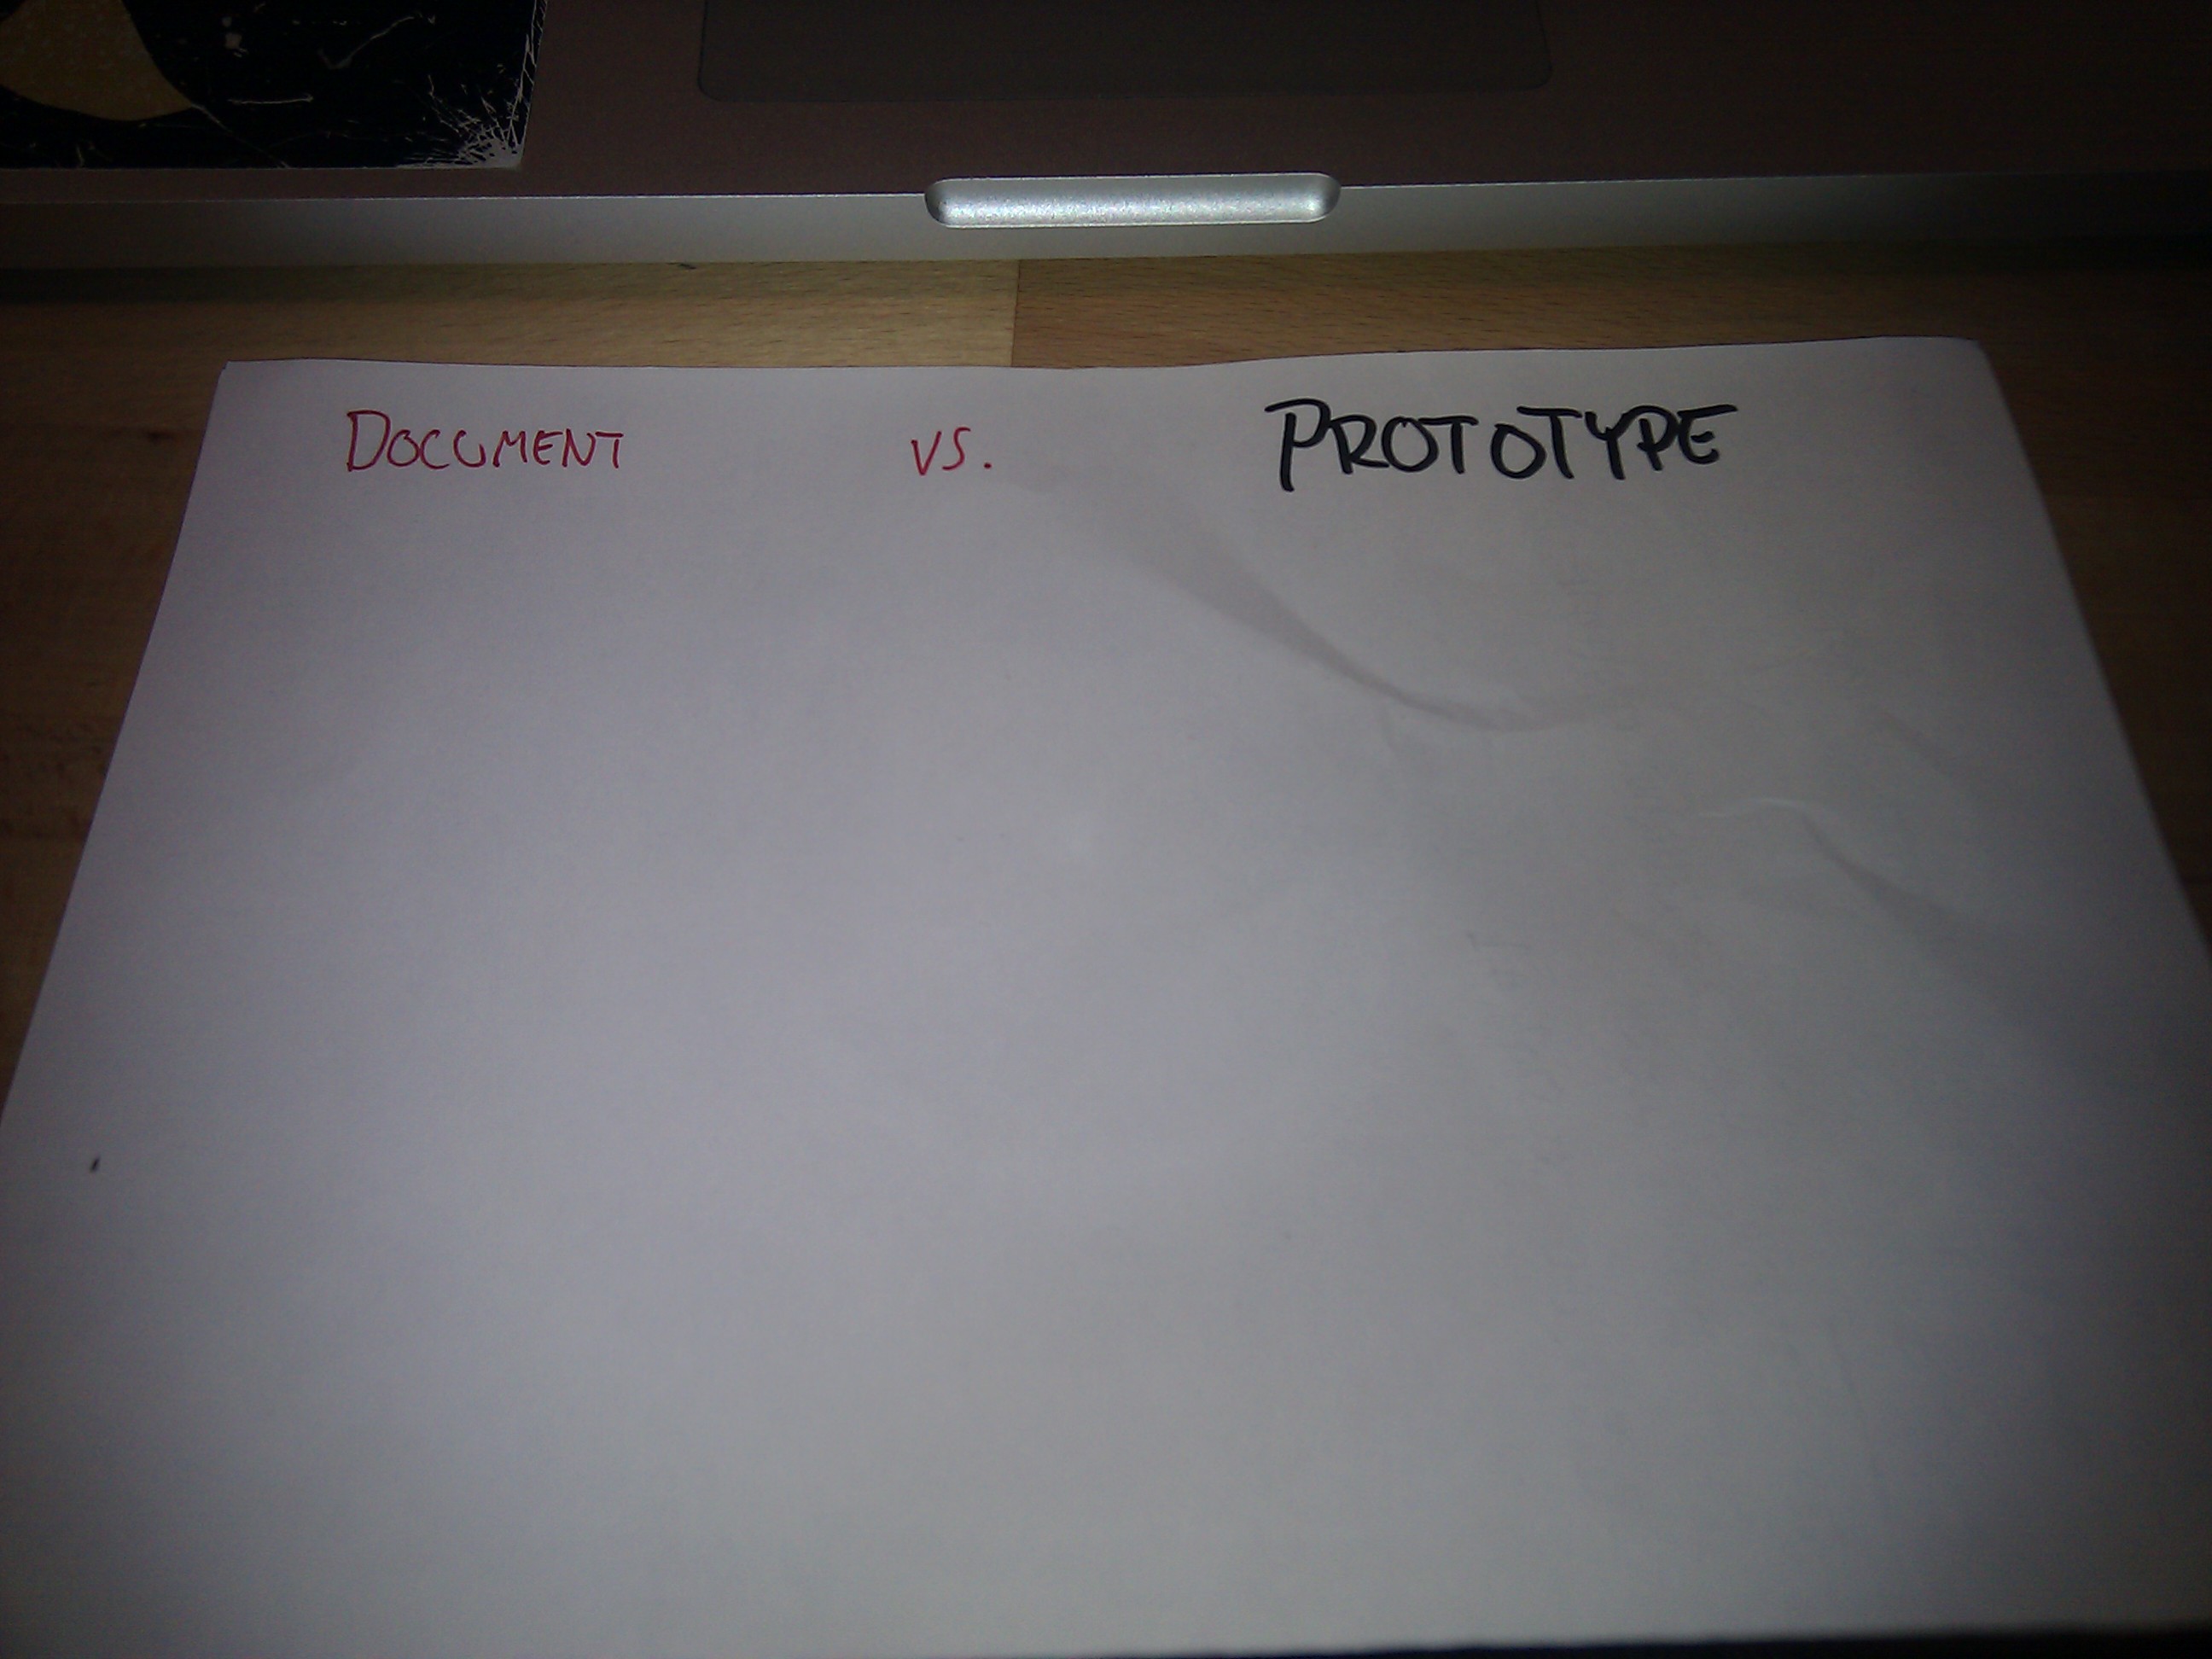 DOCUMENT VS. PROTOTYPE